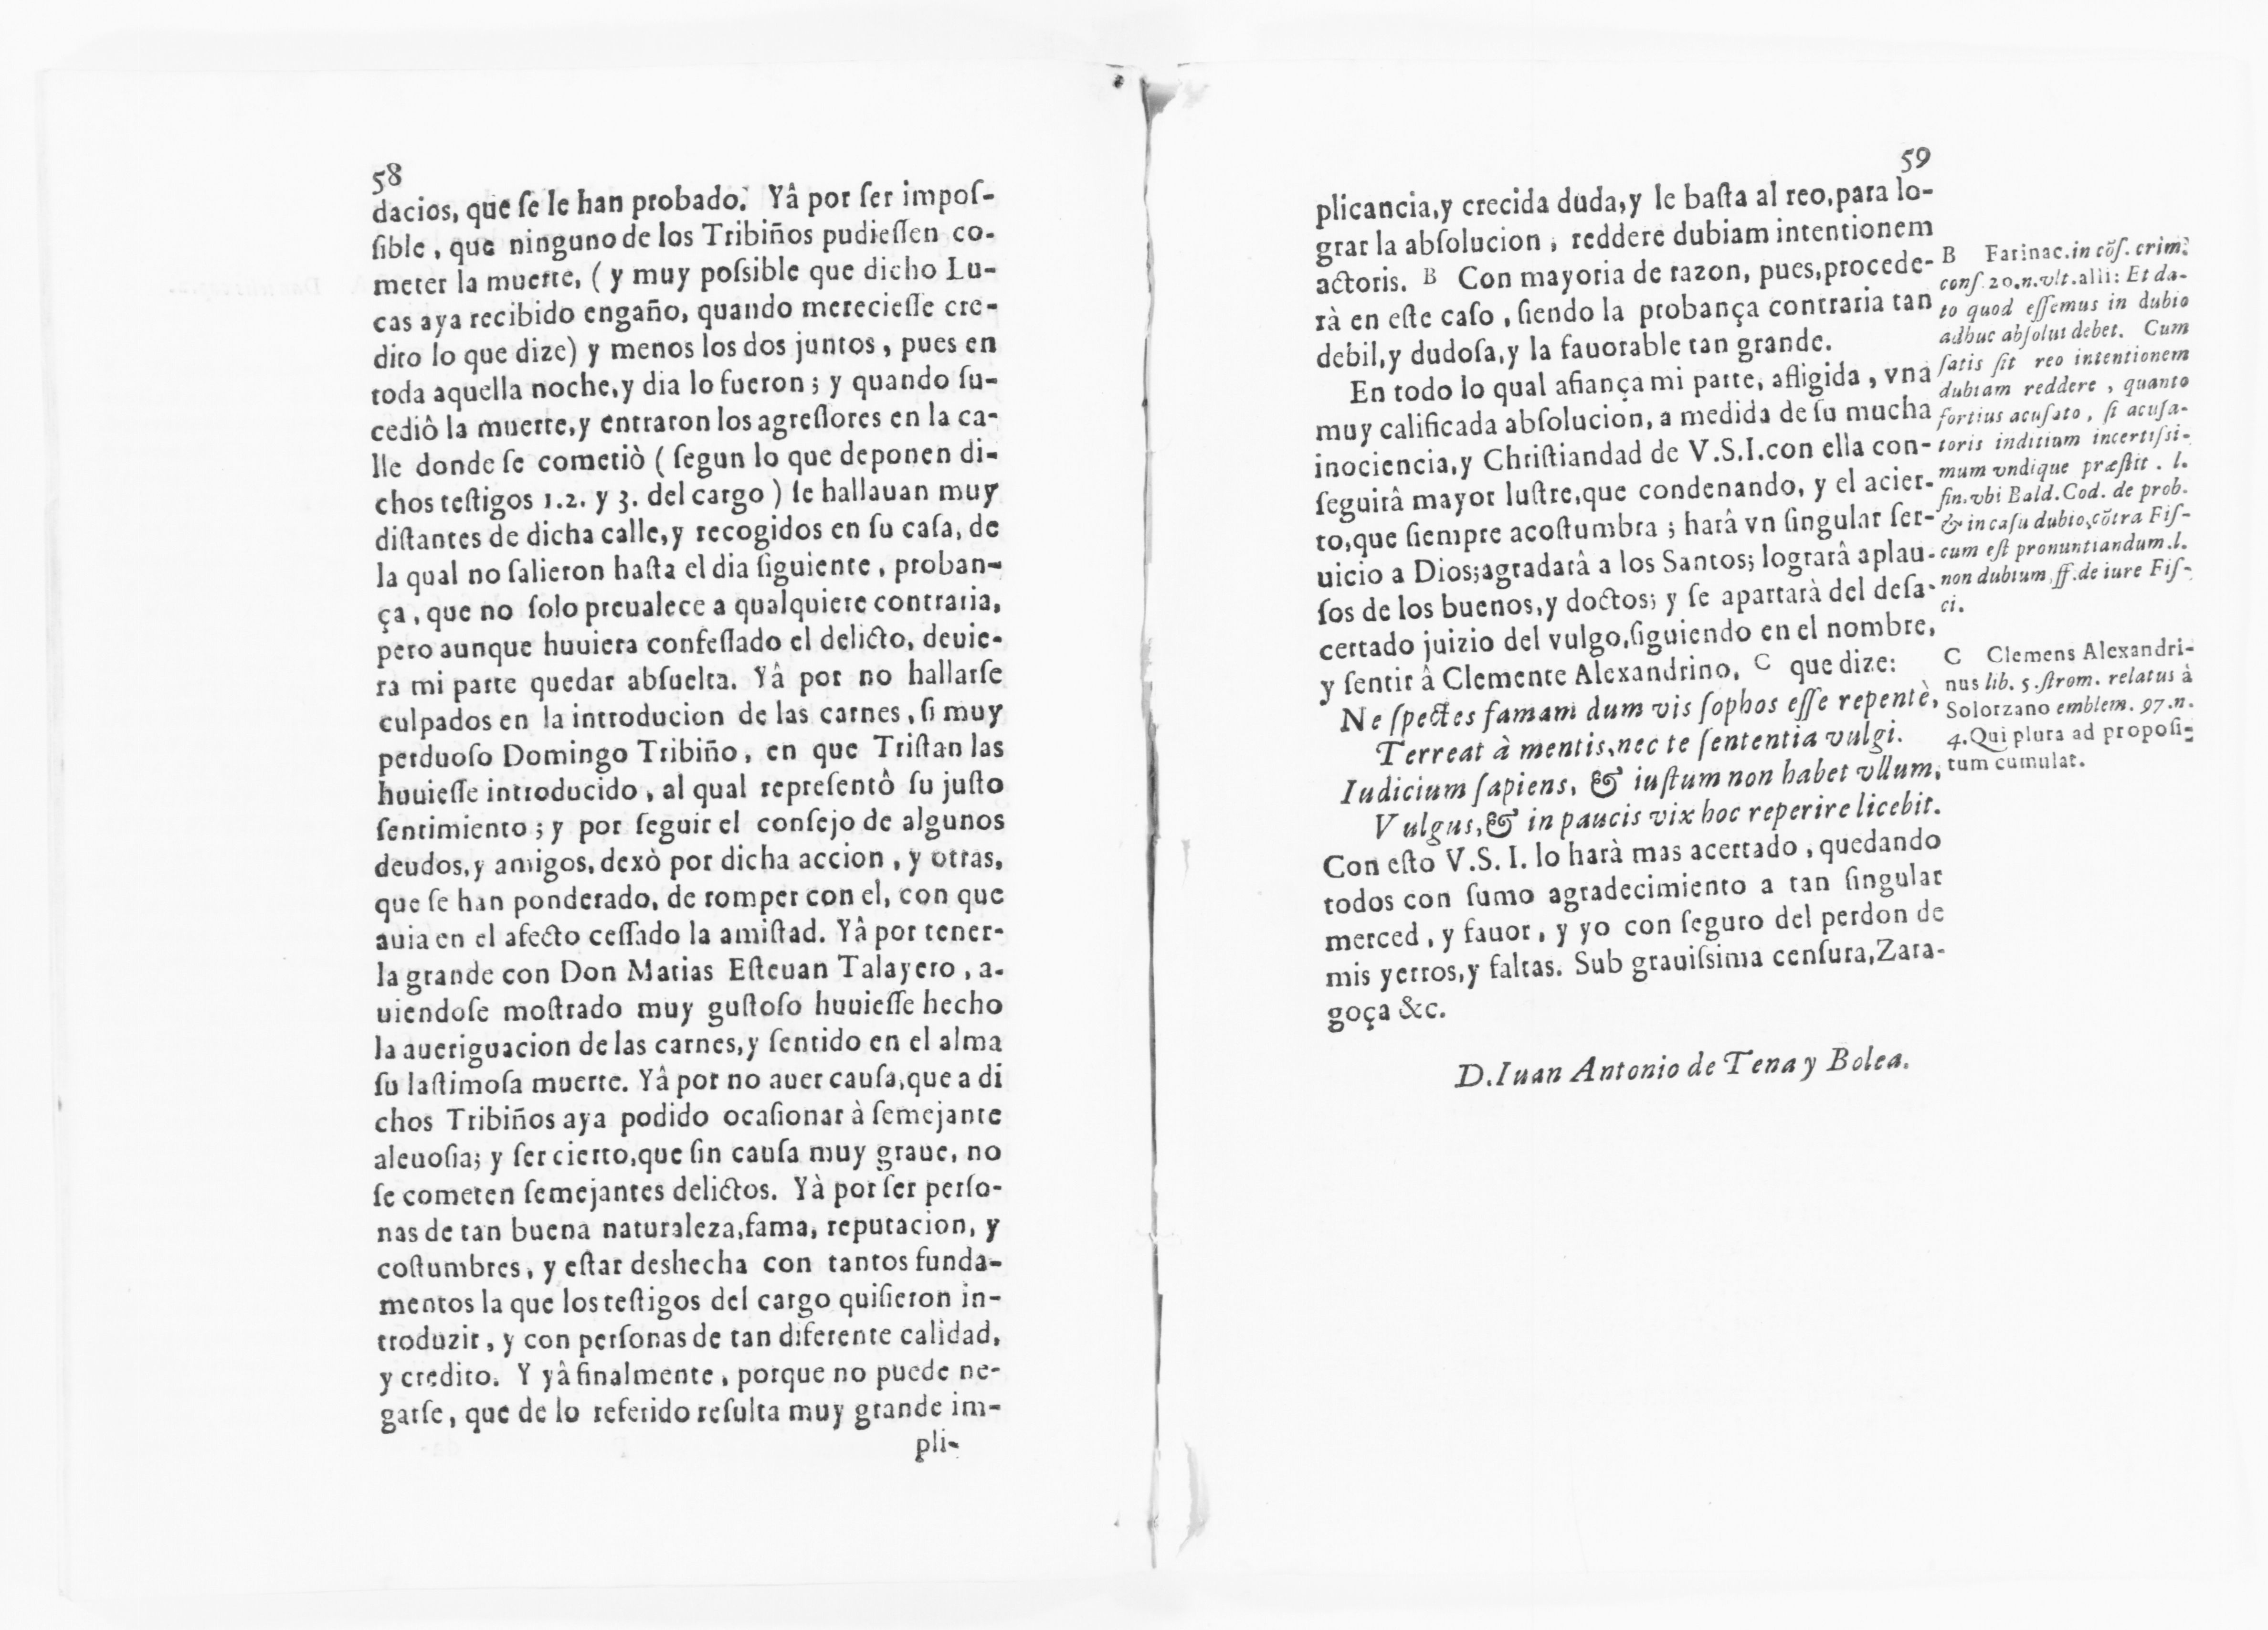 58
dacios, que ſe le han probado. Yâ por ſer impoſ-
ſible, que ninguno de los Tribiños pudieſſen co-
meter la muerte, (y muy poſsible que dicho Lu-
cas aya recibido engaño, quando merecieſſe cre-
dito lo que dize) y menos los dos juntos, pues en
toda aquella noche, y dia lo fueron; y quando ſu-
cediô la muerte, y entraron los agreſſores en la ca-
lle donde ſe cometiò (ſegun lo que deponen di-
chos teſtigos 1.2. y 3. del cargo) ſe hallauan muy
diſtantes de dicha calle, y recogidos en ſu caſa, de
la qual no ſalieron haſta el dia ſiguiente, proban-
ça, que no ſolo preualece a qualquiere contraria,
pero aunque huuiera confeſſado el delicto, deuie-
ra mi parte quedar abſuelta. Yâ por no hallarſe
culpados en la introducion de las carnes, ſi muy
perduoſo Domingo Tribiño, en que Triſtan las
huuieſſe introducido, al qual repreſentô ſu juſto
ſentimiento; y por ſeguir el conſejo de algunos
deudos, y amigos, dexò por dicha accion, y otras,
que ſe han ponderado, de romper con el, con que
auia en el afecto ceſſado la amiſtad. Yâ por tener-
la grande con Don Matias Eſteuan Talayero, a-
uiendoſe moſtrado muy guſtoſo huuieſſe hecho
la aueriguacion de las carnes, y ſentido en el alma
ſu laſtimoſa muerte. Yâ por no auer cauſa, que a di
chos Tribiños aya podido ocaſionar à ſemejante
aleuoſia; y ſer cierto, que ſin cauſa muy graue, no
ſe cometen ſemejantes delictos. Yà por ſer perſo-
nas de tan buena naturaleza, fama, reputacion, y
coſtumbres, y eſtar deshecha con tantos funda-
mentos la que los teſtigos del cargo quiſieron in-
troduzir, y con perſonas de tan diferente calidad,
y credito. Y yâ finalmente, porque no puede ne-
garſe, que de lo referido reſulta muy grande im-
pli-
59
plicancia, y crecida duda, y le baſta al reo, para lo-
grar la abſolucion, reddere dubiam intentionem
actoris. B Con mayoria de razon, pues, procede-
rà en eſte caſo, ſiendo la probança contraria tan
debil, y dudoſa, y la fauorable tan grande.
En todo lo qual afiança mi parte, afligida, vna
muy calificada abſolucion, a medida de ſu mucha
inociencia, y Chriſtiandad de V.S.I. con ella con-
ſeguirâ mayor luſtre, que condenando, y el acier-
to, que ſiempre acoſtumbra; harâ vn ſingular ſer-
uicio a Dios; agradarâ a los Santos; lograrâ aplau-
ſos de los buenos, y doctos; y ſe apartarà del deſa-
certado juizio del vulgo, ſiguiendo en el nombre,
y ſentir â Clemente Alexandrino, C que dize:
Ne ſpectes famam dum vis ſophos eſſe repentè,
Terreat à mentis, nec te ſententia vulgi.
Iudicium ſapiens, & iuſtum non habet vllum,
Vulgus, & in paucis vix hoc reperire licebit.
Con eſto V.S.I. lo harà mas acertado, quedando
todos con ſumo agradecimiento a tan ſingular
merced, y fauor, y yo con ſeguro del perdon de
mis yerros, y faltas. Sub grauiſsima cenſura, Zara-
goça &c.
D. Iuan Antonio de Tena y Bolea.
B Farinac. in cõſ. crim.
conſ. 20. n. vlt. alli: Et da-
to quod eſſemus in dubio
adhuc abſolui debet. Cum
ſatis ſit reo intentionem
dubiam reddere, quanto
fortius acuſato, ſi acuſa-
toris inditium incertiſsi-
mum vndique præſtit. l.
fin. vbi Bald. Cod. de prob.
& in caſu dubio, cõtra Fiſ-
cum eſt pronuntiandum. l.
non dubium, ff. de iure Fiſ-
ci.
C Clemens Alexandri-
nus lib. 5. ſtrom. relatus à
Solorzano emblem. 97. n.
4. Qui plura ad propoſi-
tum cumulat.